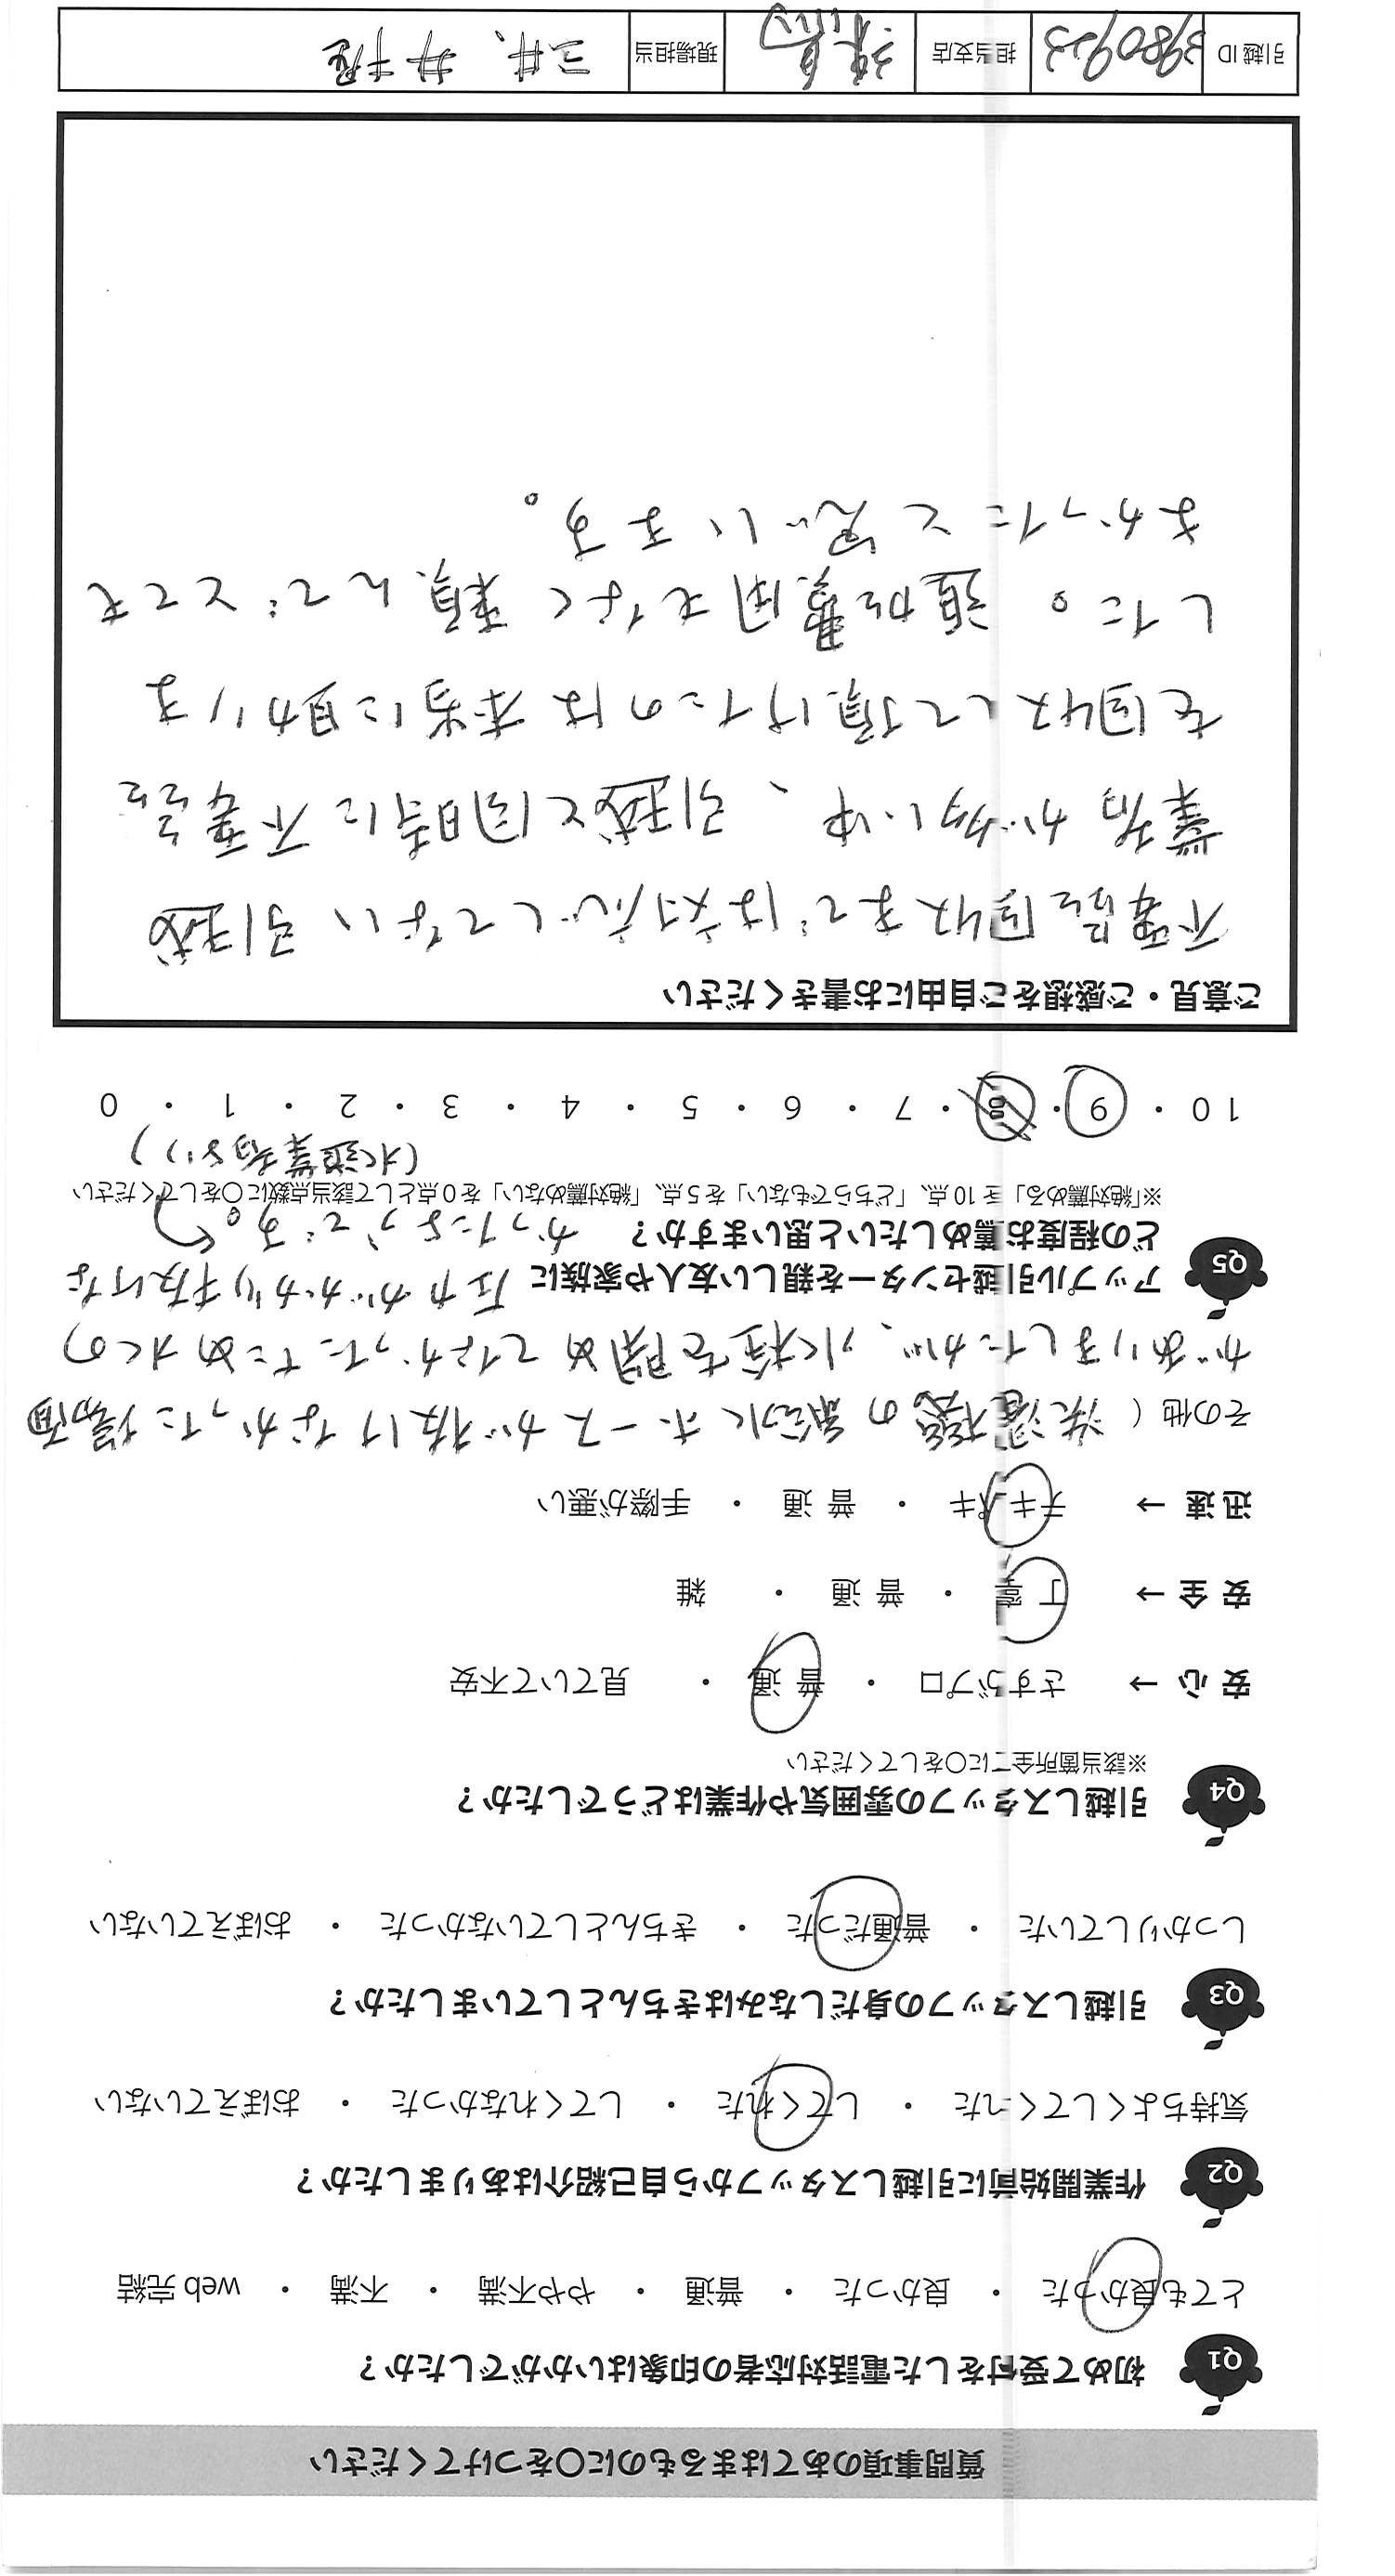 質問事項のあてはまるものに○をつけてください
Q1 初めて受付をした電話対応者の印象はいかがでしたか？
とても良かった ・ 良かった ・ 普通 ・ やや不満 ・ 不満 ・ web 完結
Q2 作業開始前に引越しスタッフから自己紹介はありましたか？
気持ちよくしてくれた ・ してくれた ・ してくれなかった ・ おぼえていない
Q3 引越しスタッフの身だしなみはきちんとしていましたか？
しっかりしていた ・ 普通だった ・ きちんとしていなかった ・ おぼえていない
Q4 引越しスタッフの雰囲気や作業はどうでしたか？
※該当箇所全てに○をしてください
安 心 → さすがプロ ・ 普 通 ・ 見ていて不安
安 全 → 丁 寧 ・ 普 通 ・ 雑
迅 速 → テキパキ ・ 普 通 ・ 手際が悪い
その他 ( 洗濯機の給水ホースが抜けなかった場面
がありましたが、水栓を閉めてなかったため水の
圧力がかかり抜けな
かったようです。
(水道業者より)
Q5 アップル引越センターを親しい友人や家族に
どの程度お薦めしたいと思いますか？
※「絶対薦める」を 10 点、「どちらでもない」を 5 点、「絶対薦めない」を 0 点として該当点数に○をしてください
10 ・ 9 ・ 8 ・ 7 ・ 6 ・ 5 ・ 4 ・ 3 ・ 2 ・ 1 ・ 0
ご意見・ご感想をご自由にお書きください
不要品回収までは対応してない引越
業者が多い中、引越と同時に不要品
を回収して頂けたのは本当に助かりま
した。追加費用もなく頼んでとても
よかったと思います。
引越 ID 3980923 担当支店 練馬 現場担当 三井、井